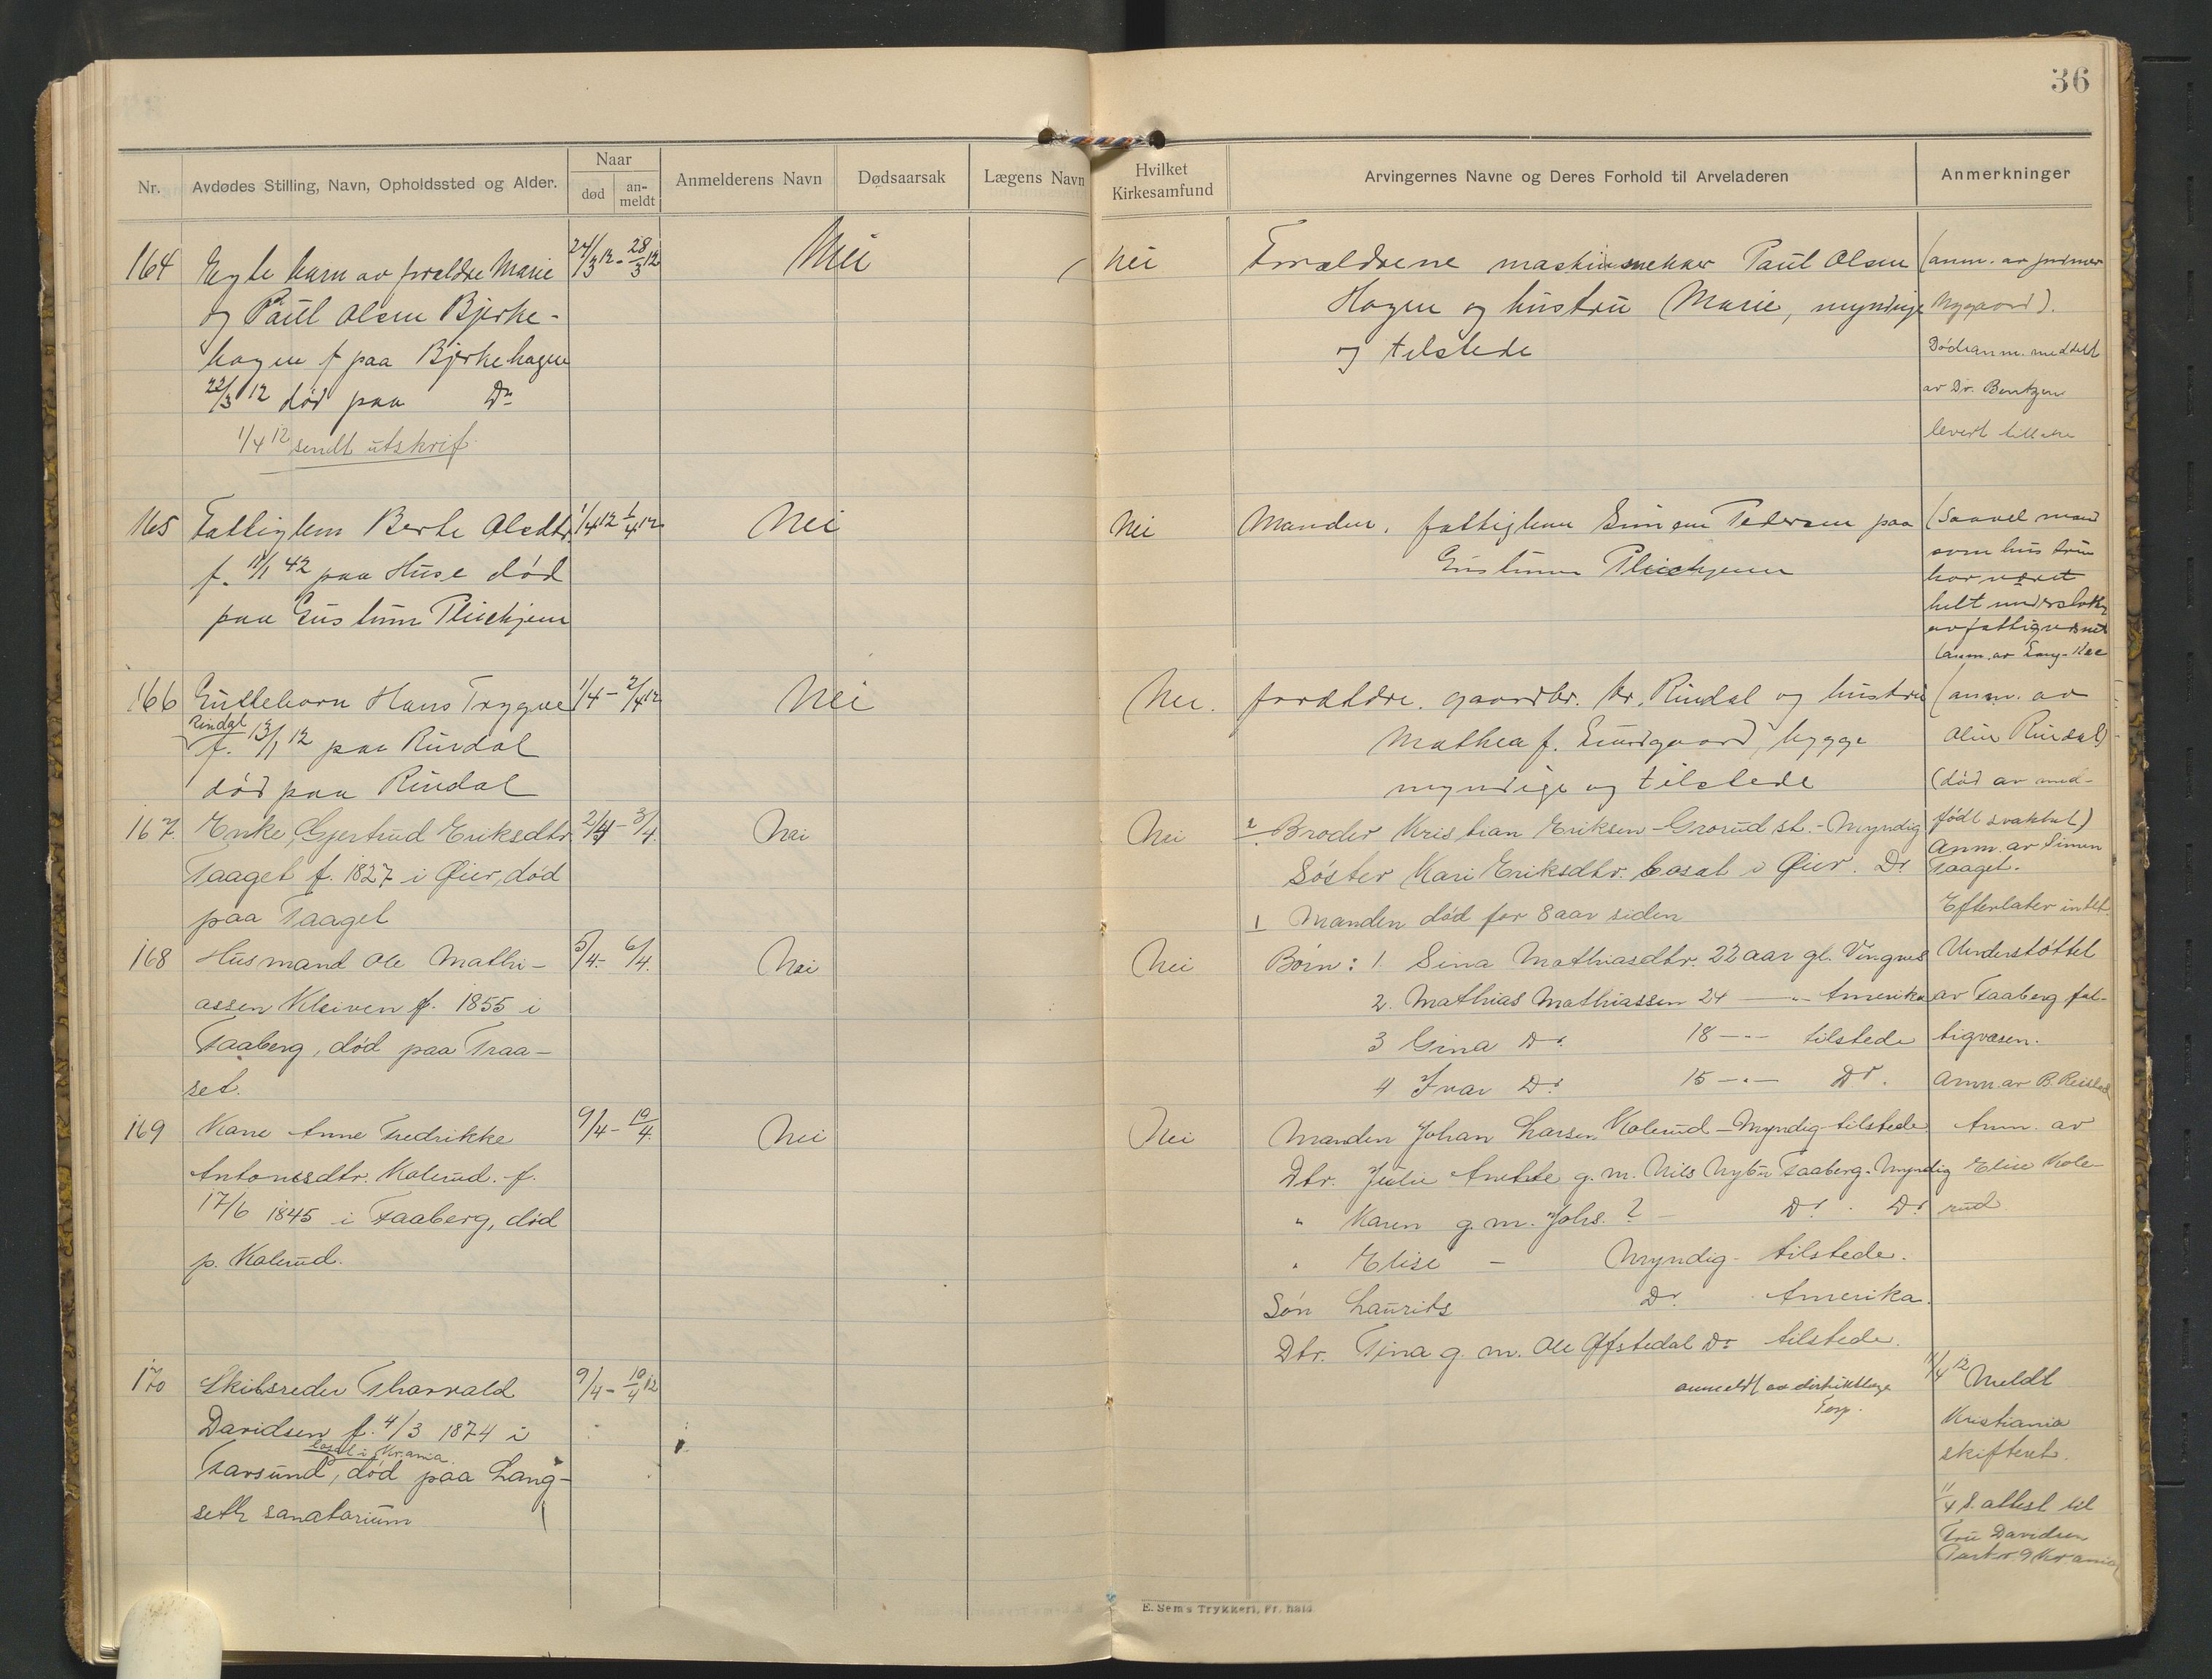 36
Nr.
Avdødes Stilling, Navn, Opholdssted og Alder.
Naar
død
an-
meldt
Anmelderens Navn
Dødsaarsak
Lægens Navn
Hvilket
Kirkesamfund
Arvingernes Navne og Deres Forhold til Arveladeren
Anmerkninger
164
Egte barn av forældre Marie
og Paul Olsen Bjerke-
hagen f paa Bjerkehagen
22/3 12 død paa Do
1/4 12 sendt utskrif.
24/3 12 - 28/3 12
Nei
Nei
Forældrene maskinsnekker Paul Olsen
Hagen og hustru Marie, myndige
og tilstede
(anm. av
Nygaard).
Dødsanm. meddelt
av Dr. Bentzen
levert
165
Fattiglem Berte Olsdtr.
f. 11/1 42 paa Huse død
paa Gustum Pleiehjem
1/4 12 1/4 12
Nei
Nei
Manden. fattiglem Simen Pedersen paa
Gustum Pleiehjem
(Saavel mand
som hustru
har været
helt understøttet
av fattigvæsnet
(anm. av
166
Guttebarn Hans Trygve
Rindal
f. 13/1 12 paa Rindal
død paa Rindal
1/4 - 2/4 12
Nei
Nei.
forældre. gaardbr. Kr. Rindal og hustru
Mathea f. Lundgaard, begge
myndige og tilstede
(anm. av
Oline Rindal)
(død av med-
født svakhet)
167.
Enke, Gjertrud Eriksdtr.
Taaget f. 1827 i Øier, død
paa Taaget
2/4 - 3/4.
Nei
Nei
2 Broder Kristian Eriksen - Grorud st. - Myndig
Søster Kari Eriksdtr. bosat i Øier. Do
1 Manden død for 8 aar siden
Anm. av Simen
Taaget.
Efterlater intet.
168
Husmand Ole Mathi-
assen Kleiven f. 1855 i
Faaberg, død paa Traa-
set.
5/4. 6/4.
Nei
Nei
Børn: 1. Sina Mathiasdtr. 22 aar gl. Vingnes
2. Mathias Mathiassen 24 — " — Amerika
3 Gina Do. 18 — " — tilstede
4 Ivar Do. 15 — " — Do.
Understøttet
av Faaberg fat-
tigvæsen.
Anm. av B. Reistad
169
Kone Anne Fredrikke
Antonisdtr. Kolerud. f.
17/6 1845 i Faaberg, død
p. Kolerud.
9/4 - 10/4.
Nei
Nei
Manden Johan Larsen Kolerud - Myndig tilstede
Dtr. Julie Anette g. m. Nils Nybu Faaberg. Myndig
" Karen g. m. Johs. ? - Do. Do
" Elise - Myndig - tilstede.
Søn Laurits Do. Amerika.
Dtr. Tina g. m. Ole Offstedal Do tilstede.
Anm. av
Elise Kole-
rud.
170
Skibsreder Thorvald
Davidsen f. 4/3 1874 i
bosat i Kr.ania.
Farsund, død paa Lang-
seth sanatorium
9/4 - 10/4 12
anmeldt av distriktslæge
Torp.
11/4 12 Meldt
Kristiania
skifteret.
11/4 S. attest til
Fru Davidsen
E. Sem's Trykkeri, Fr. hald